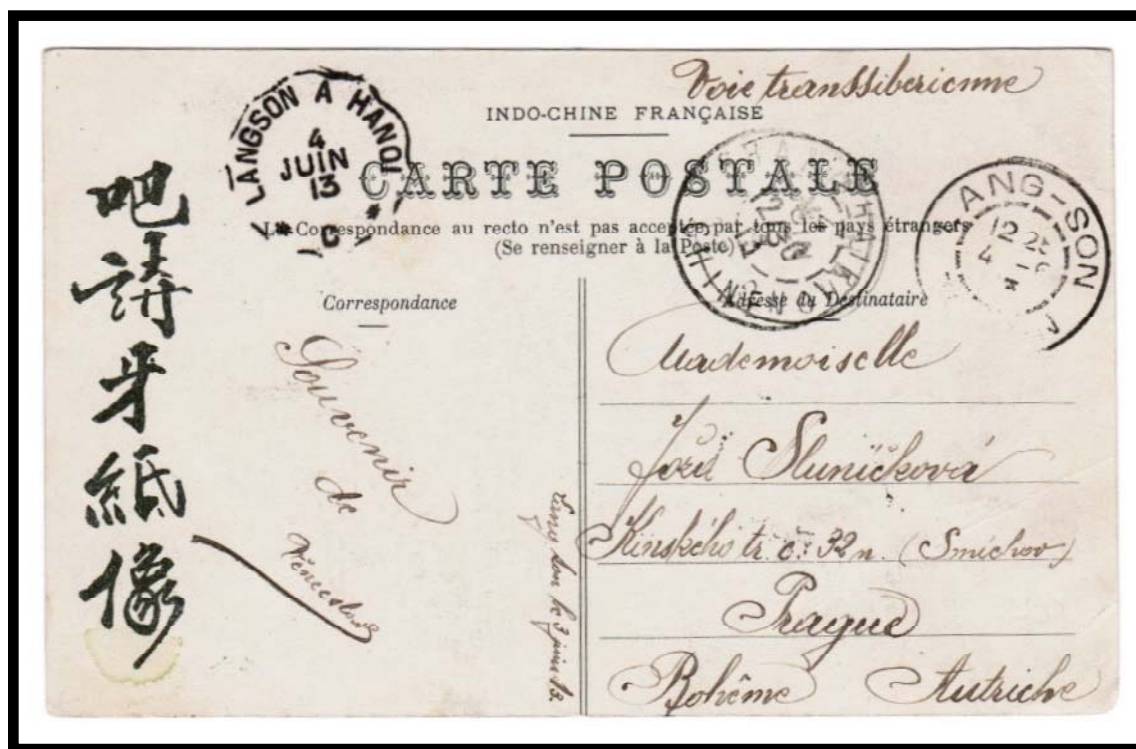 Voie transsibérienne
INDO-CHINE FRANÇAISE
CARTE POSTALE
La Correspondance au recto n'est pas acceptée par tous les pays étrangers
(Se renseigner à la Poste)
LANGSON A HANOI
4
JUIN
13
ANG-SON
12
4
Correspondance
Souvenir
de
Venceslas
Lang Son le 3 juin 13
Adresse du Destinataire
Mademoiselle
Sluníčková
Kinského tr. č. 32 n. (Smíchov)
Prague
Bohême Autriche
吧
講
牙
紙
像